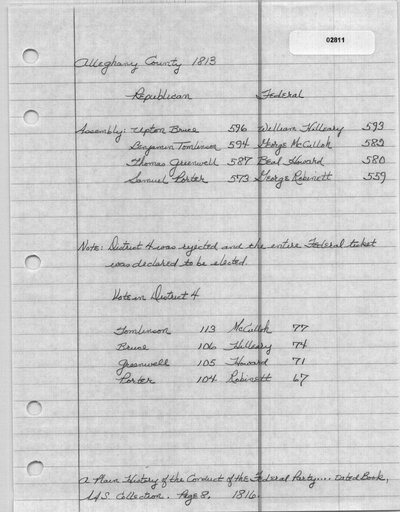 02811
Alleghany County 1813
Republican Federal
Assembly: Upton Bruce 596 William Hilleary 593
Benjamin Tomlinson 594 George McCulloh 589
Thomas Greenwell 587 Beal Howard 580
Samuel Porter 573 George Robinett 559
Note: District 4 was rejected and the entire Federal ticket
was declared to be elected
Vote in District 4
Tomlinson 113 McCulloh 77
Bruce 106 Hilleary 74
Greenwell 105 Howard 71
Porter 104 Robinett 67
A Plain History of the Conduct of the Federal Party.... Dated Book,
Collection. Page 8. 1816.